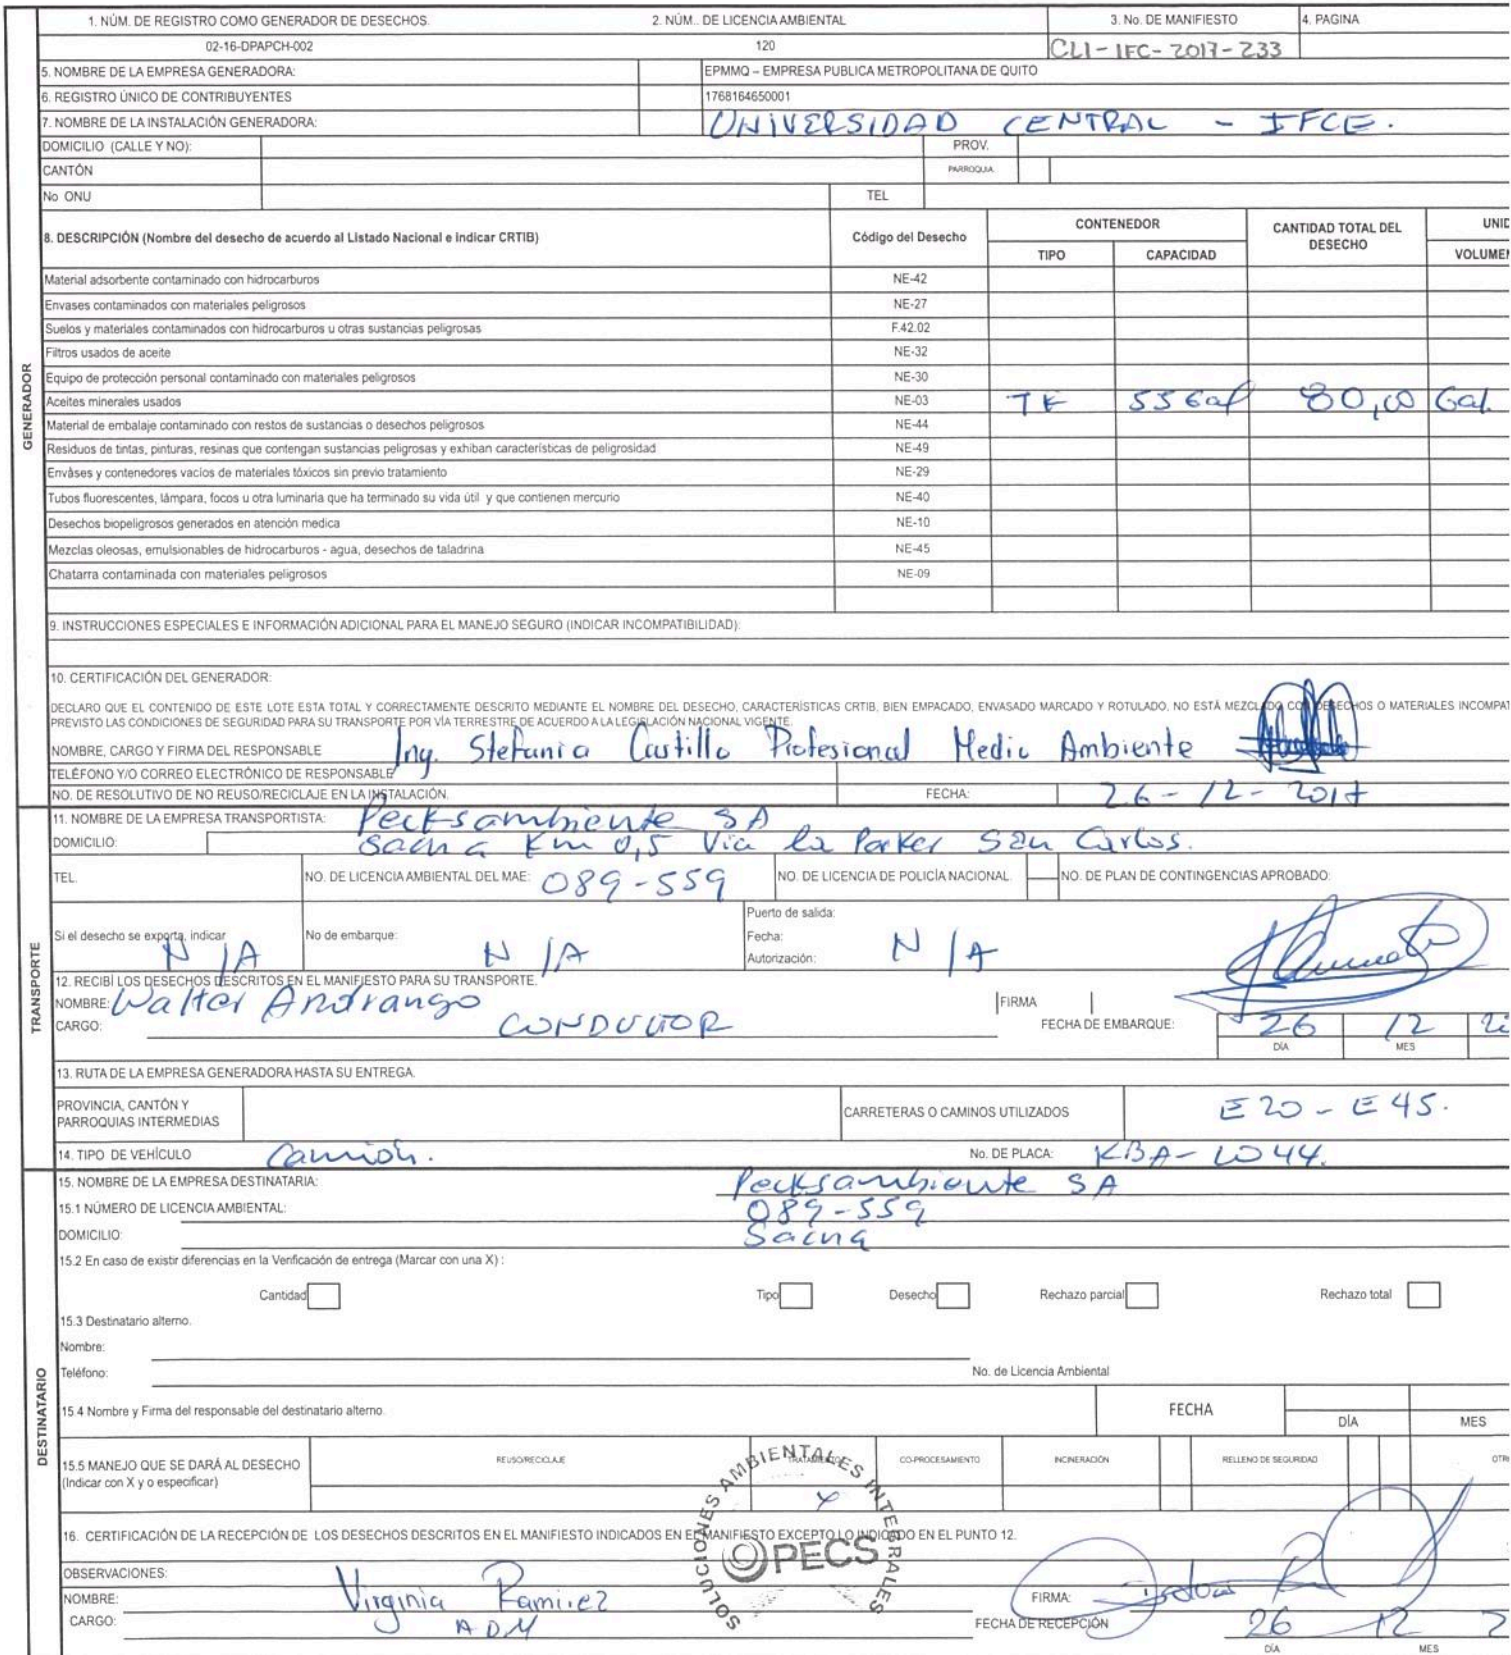 1. NÚM. DE REGISTRO COMO GENERADOR DE DESECHOS. 2. NÚM.. DE LICENCIA AMBIENTAL 3. No. DE MANIFIESTO 4. PAGINA
02-16-DPAPCH-002 120 CLI-IFC-2017-233
5. NOMBRE DE LA EMPRESA GENERADORA: EPMMQ – EMPRESA PUBLICA METROPOLITANA DE QUITO
6. REGISTRO ÚNICO DE CONTRIBUYENTES 1768164650001
7. NOMBRE DE LA INSTALACIÓN GENERADORA: UNIVERSIDAD CENTRAL - IFCE.
DOMICILIO (CALLE Y NO): PROV.
CANTÓN PARROQUIA.
No ONU TEL
8. DESCRIPCIÓN (Nombre del desecho de acuerdo al Listado Nacional e indicar CRTIB) Código del Desecho CONTENEDOR CANTIDAD TOTAL DEL DESECHO UNID
TIPO CAPACIDAD VOLUMEN
Material adsorbente contaminado con hidrocarburos NE-42
Envases contaminados con materiales peligrosos NE-27
Suelos y materiales contaminados con hidrocarburos u otras sustancias peligrosas F.42.02
Filtros usados de aceite NE-32
Equipo de protección personal contaminado con materiales peligrosos NE-30
Aceites minerales usados NE-03 TK 55 Gal 80,00 Gal.
Material de embalaje contaminado con restos de sustancias o desechos peligrosos NE-44
Residuos de tintas, pinturas, resinas que contengan sustancias peligrosas y exhiban características de peligrosidad NE-49
Envàses y contenedores vacíos de materiales tóxicos sin previo tratamiento NE-29
Tubos fluorescentes, lámpara, focos u otra luminaria que ha terminado su vida útil y que contienen mercurio NE-40
Desechos biopeligrosos generados en atención medica NE-10
Mezclas oleosas, emulsionables de hidrocarburos - agua, desechos de taladrina NE-45
Chatarra contaminada con materiales peligrosos NE-09
9. INSTRUCCIONES ESPECIALES E INFORMACIÓN ADICIONAL PARA EL MANEJO SEGURO (INDICAR INCOMPATIBILIDAD):
GENERADOR
10. CERTIFICACIÓN DEL GENERADOR:
DECLARO QUE EL CONTENIDO DE ESTE LOTE ESTA TOTAL Y CORRECTAMENTE DESCRITO MEDIANTE EL NOMBRE DEL DESECHO, CARACTERÍSTICAS CRTIB, BIEN EMPACADO, ENVASADO MARCADO Y ROTULADO, NO ESTÁ MEZCLADO CON DESECHOS O MATERIALES INCOMPAT
PREVISTO LAS CONDICIONES DE SEGURIDAD PARA SU TRANSPORTE POR VÍA TERRESTRE DE ACUERDO A LA LEGISLACIÓN NACIONAL VIGENTE.
NOMBRE, CARGO Y FIRMA DEL RESPONSABLE Ing. Stefania Castillo Profesional Medio Ambiente
TELÉFONO Y/O CORREO ELECTRÓNICO DE RESPONSABLE
NO. DE RESOLUTIVO DE NO REUSO/RECICLAJE EN LA INSTALACIÓN. FECHA: 26-12-2017
11. NOMBRE DE LA EMPRESA TRANSPORTISTA: Pecksambiente SA
DOMICILIO: Sacha Km 0,5 Via la Parker San Carlos.
TEL. NO. DE LICENCIA AMBIENTAL DEL MAE: 089-559 NO. DE LICENCIA DE POLICÍA NACIONAL. NO. DE PLAN DE CONTINGENCIAS APROBADO:
Si el desecho se exporta, indicar N/A No de embarque: N/A
Puerto de salida:
Fecha:
Autorización: N/A
TRANSPORTE
12. RECIBÍ LOS DESECHOS DESCRITOS EN EL MANIFIESTO PARA SU TRANSPORTE.
NOMBRE: Walter Andrango FIRMA
CARGO: CONDUCTOR FECHA DE EMBARQUE: 26 12
DÍA MES
13. RUTA DE LA EMPRESA GENERADORA HASTA SU ENTREGA.
PROVINCIA, CANTÓN Y PARROQUIAS INTERMEDIAS CARRETERAS O CAMINOS UTILIZADOS E20 - E45.
14. TIPO DE VEHÍCULO Camión. No. DE PLACA: KBA-1044.
15. NOMBRE DE LA EMPRESA DESTINATARIA: Pecksambiente SA
15.1 NÚMERO DE LICENCIA AMBIENTAL: 089-559
DOMICILIO: Sacha
15.2 En caso de existir diferencias en la Verificación de entrega (Marcar con una X) :
Cantidad Tipo Desecho Rechazo parcial Rechazo total
15.3 Destinatario alterno.
Nombre:
Teléfono: No. de Licencia Ambiental
15.4 Nombre y Firma del responsable del destinatario alterno. FECHA
DÍA MES
DESTINATARIO
15.5 MANEJO QUE SE DARÁ AL DESECHO (Indicar con X y o especificar) REUSO/RECICLAJE TRATAMIENTO CO-PROCESAMIENTO INCINERACIÓN RELLENO DE SEGURIDAD OTR
X
16. CERTIFICACIÓN DE LA RECEPCIÓN DE LOS DESECHOS DESCRITOS EN EL MANIFIESTO INDICADOS EN EL MANIFIESTO EXCEPTO LO INDICADO EN EL PUNTO 12.
SOLUCIONES AMBIENTALES INTEGRALES
PECS
OBSERVACIONES:
NOMBRE: Virginia Ramirez FIRMA:
CARGO: ADM FECHA DE RECEPCIÓN 26 12
DÍA MES